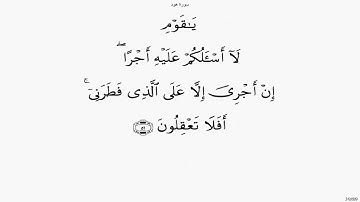 سورة هود
يَـٰقَوْمِ
لَآ أَسْـَٔلُكُمْ عَلَيْهِ أَجْرًا ۖ
إِنْ أَجْرِىَ إِلَّا عَلَى ٱلَّذِى فَطَرَنِىٓ ۚ
أَفَلَا تَعْقِلُونَ ٥١